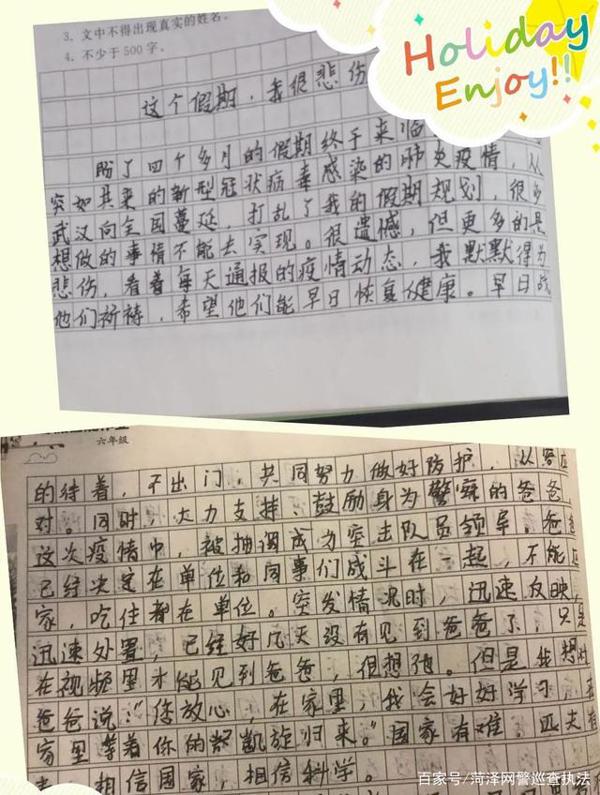 3. 文中不得出现真实的姓名。
4. 不少于500字。
Holiday
Enjoy!!
这个假期，我很悲伤
盼了四个多月的假期终于来临
突如其来的新型冠状病毒感染的肺炎疫情，从
武汉向全国蔓延，打乱了我的假期规划，很多
想做的事情不能去实现。很遗憾，但更多的是
悲伤，看着每天通报的疫情动态，我默默得为
他们祈祷，希望他们能早日恢复健康。早日战
六年级
的待着，不出门，共同努力做好防护，从容应
对。同时，大力支持、鼓励身为警察的爸爸，
这次疫情中，被抽调成为突击队员领导。爸爸
已经决定在单位和同事们战斗在一起，不能回
家，吃住都在单位。突发情况时，迅速反映，
迅速处置，已经好几天没有见到爸爸了，只是
在视频里才能见到爸爸，很想他。但是我想对
爸爸说：“您放心，在家里，我会好好学习，在
家里等着你的凯旋归来。”国家有难，匹夫有
相信国家，相信科学。
百家号/菏泽网警巡查执法